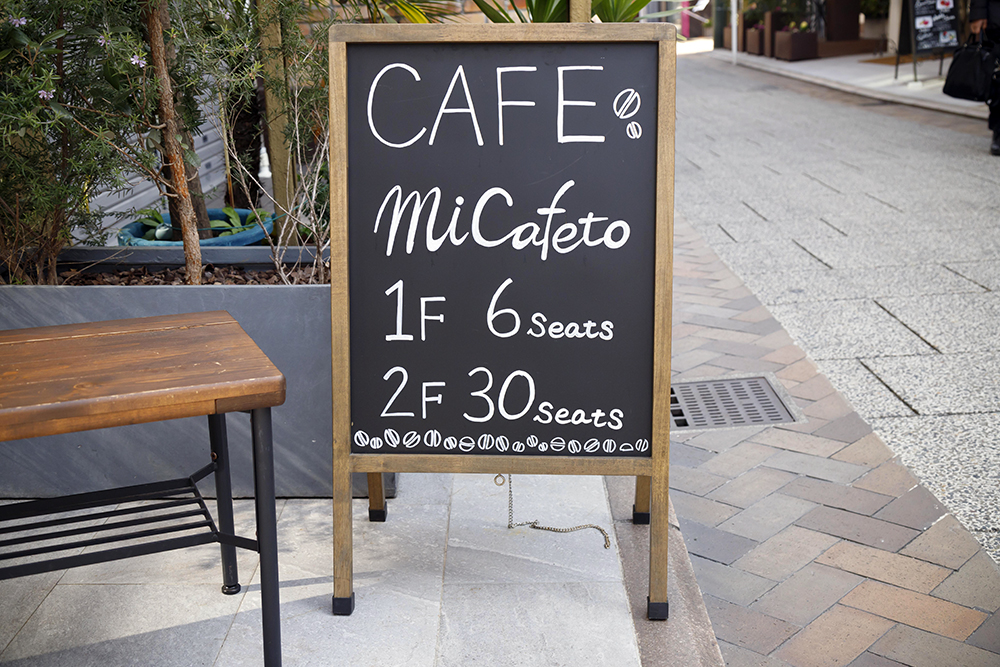 CAFE
MiCafeto
1F 6 Seats
2F 30 Seats